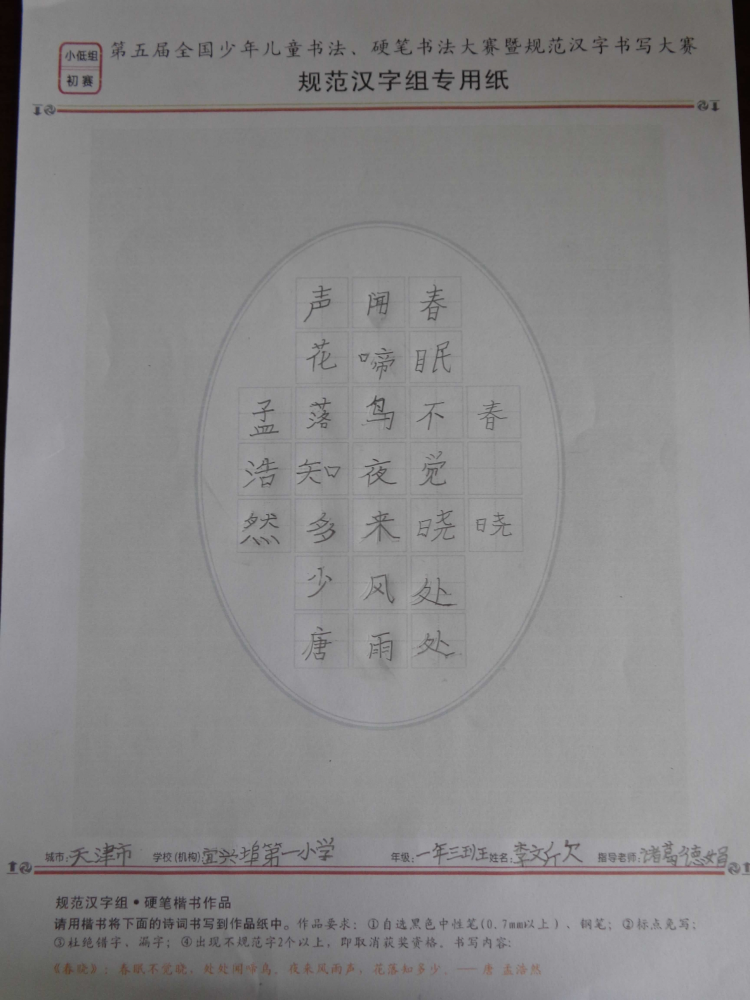 小低组
初赛
第五届全国少年儿童书法、硬笔书法大赛暨规范汉字书写大赛
规范汉字组专用纸
春晓
春眠不觉晓处处
闻啼鸟夜来风雨
声花落知多少唐
孟浩然
城市:天津市 学校(机构)宜兴埠第一小学 年级:一年三班 姓名:李文欣 指导老师:诸葛德娟
规范汉字组•硬笔楷书作品
请用楷书将下面的诗词书写到作品纸中。作品要求：①自选黑色中性笔(0.7mm以上)、钢笔；②标点免写；
③杜绝错字，漏字；④出现不规范字2个以上，即取消获奖资格。书写内容:
《春晓》：春眠不觉晓，处处闻啼鸟。夜来风雨声，花落知多少。——唐 孟浩然